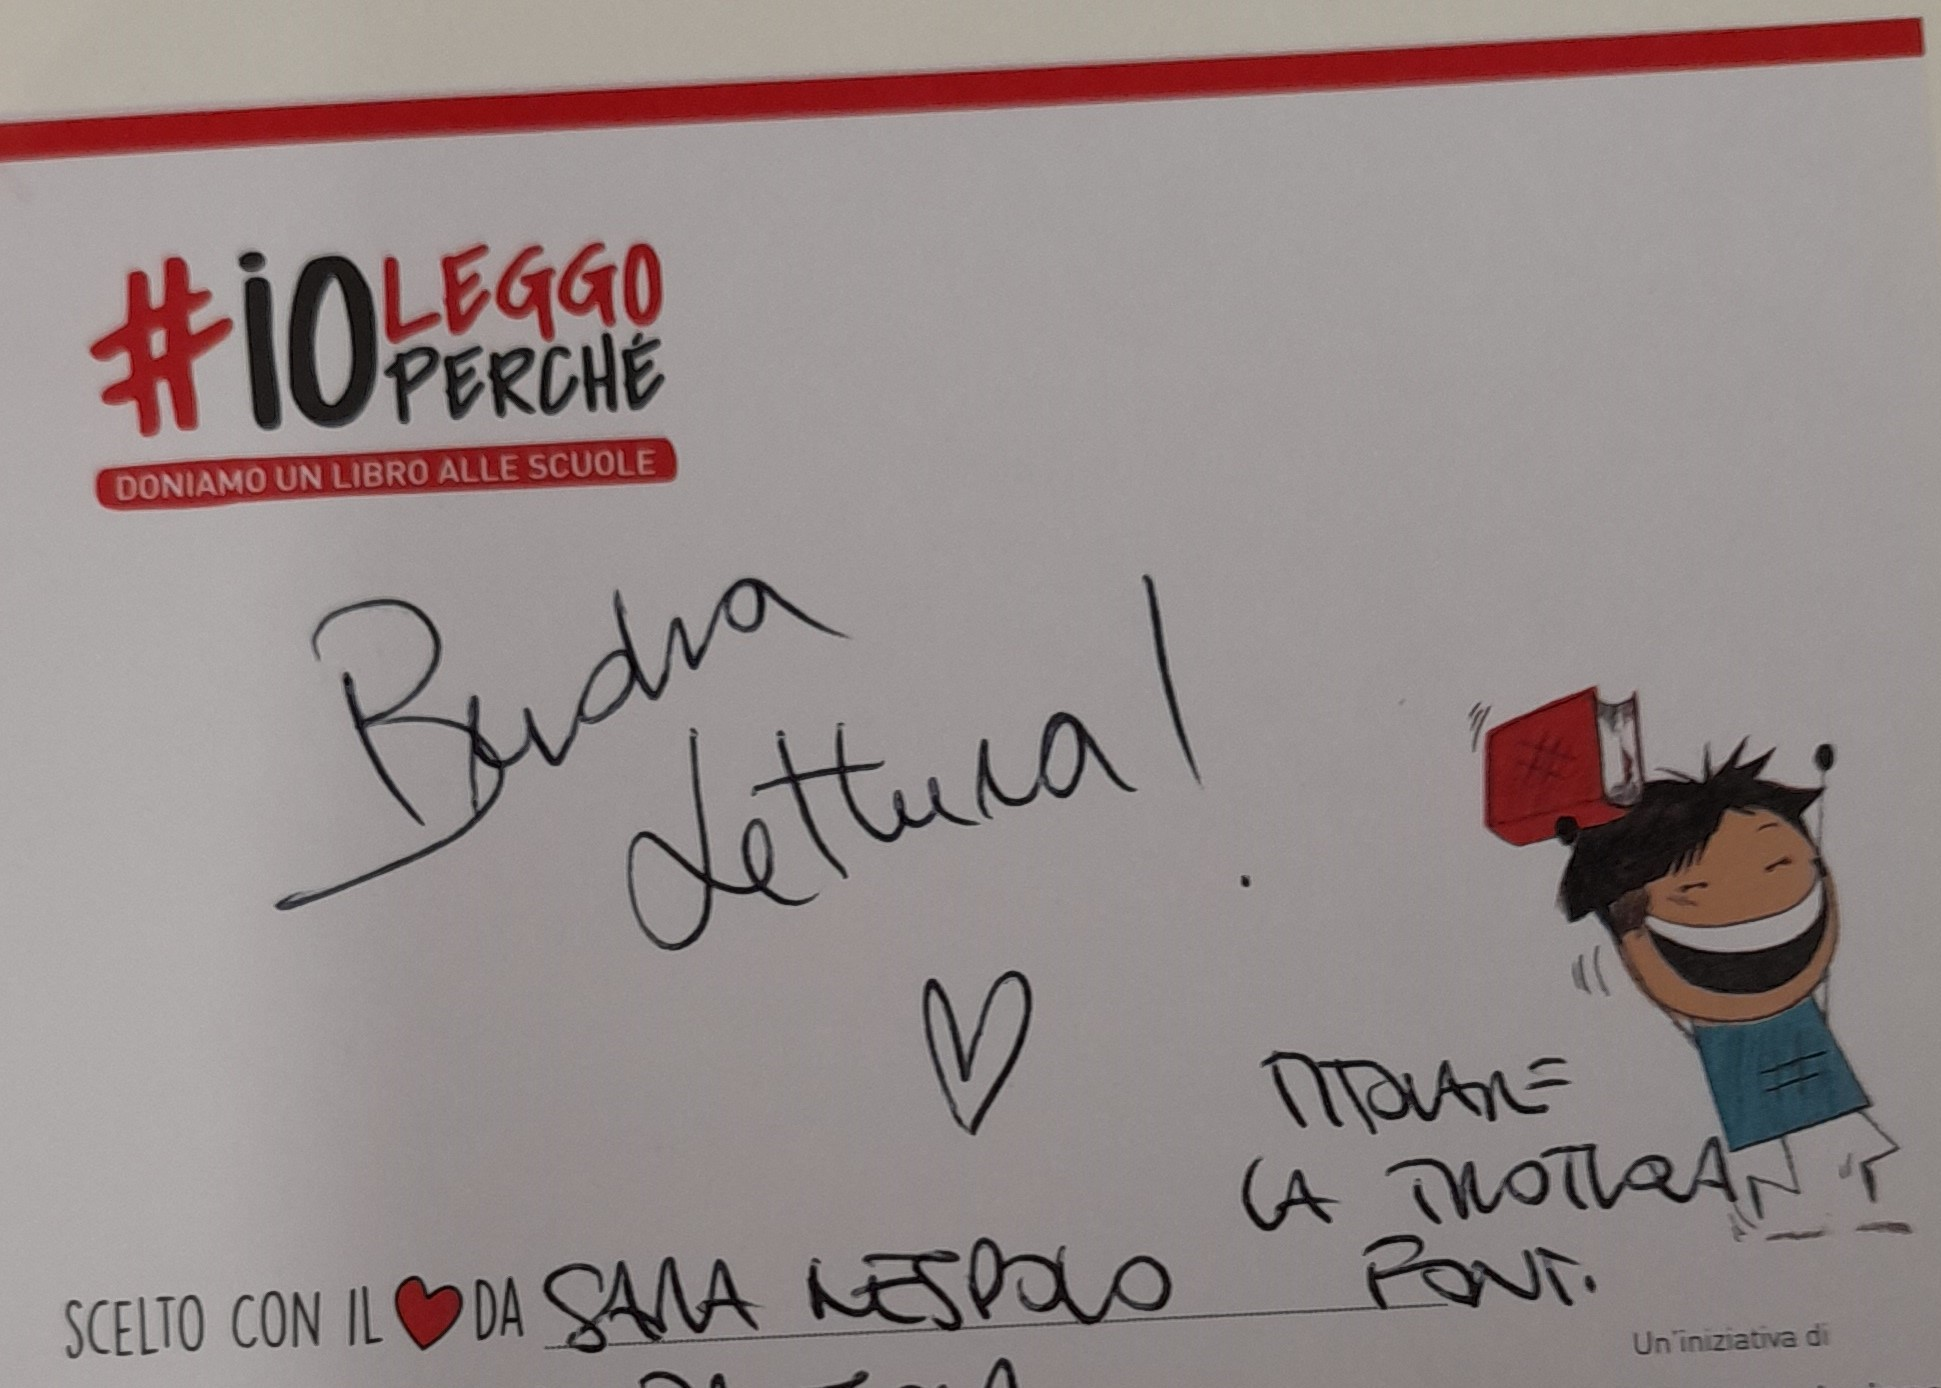 #iO LEGGO
PERCHÉ
DONIAMO UN LIBRO ALLE SCUOLE
Buona
Lettura!
TITOLARE
LA TROTTOLA
PONT.
SCELTO CON IL DA SARA NESPOLO
Un'iniziativa di